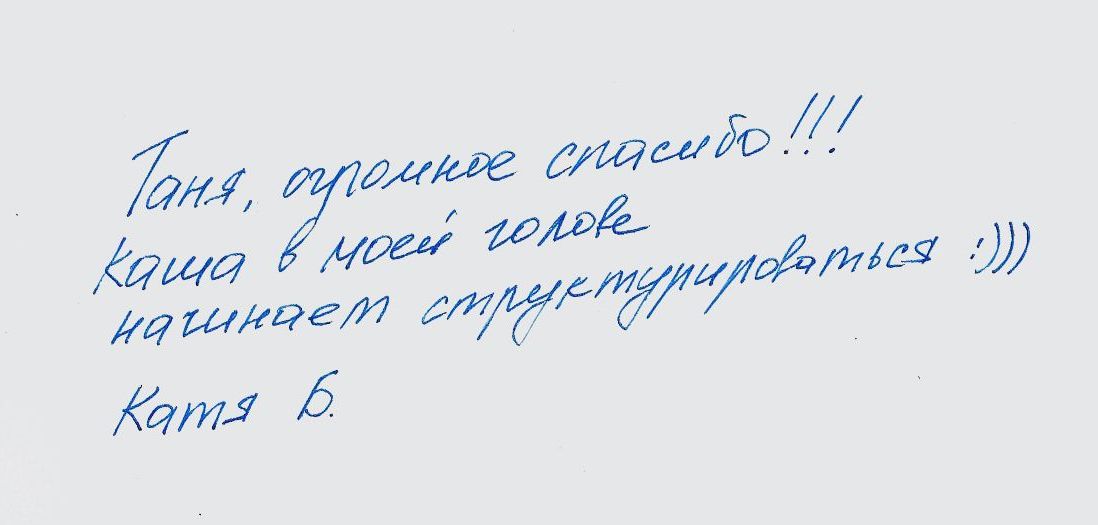 Таня, огромное спасибо!!!
Каша в моей голове
начинает структурироваться :)))
Катя Б.